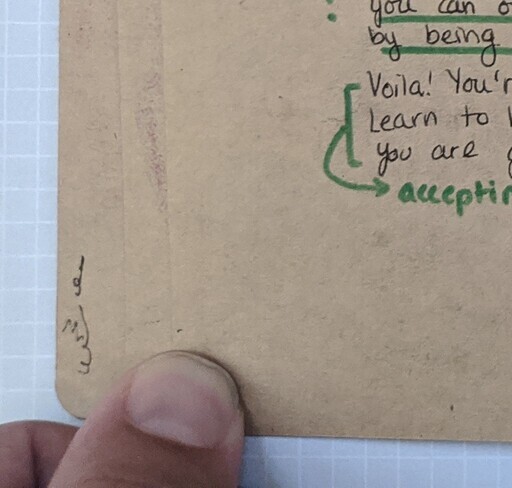 you can
by being
Voila! You'r
Learn to
you are
acceptin